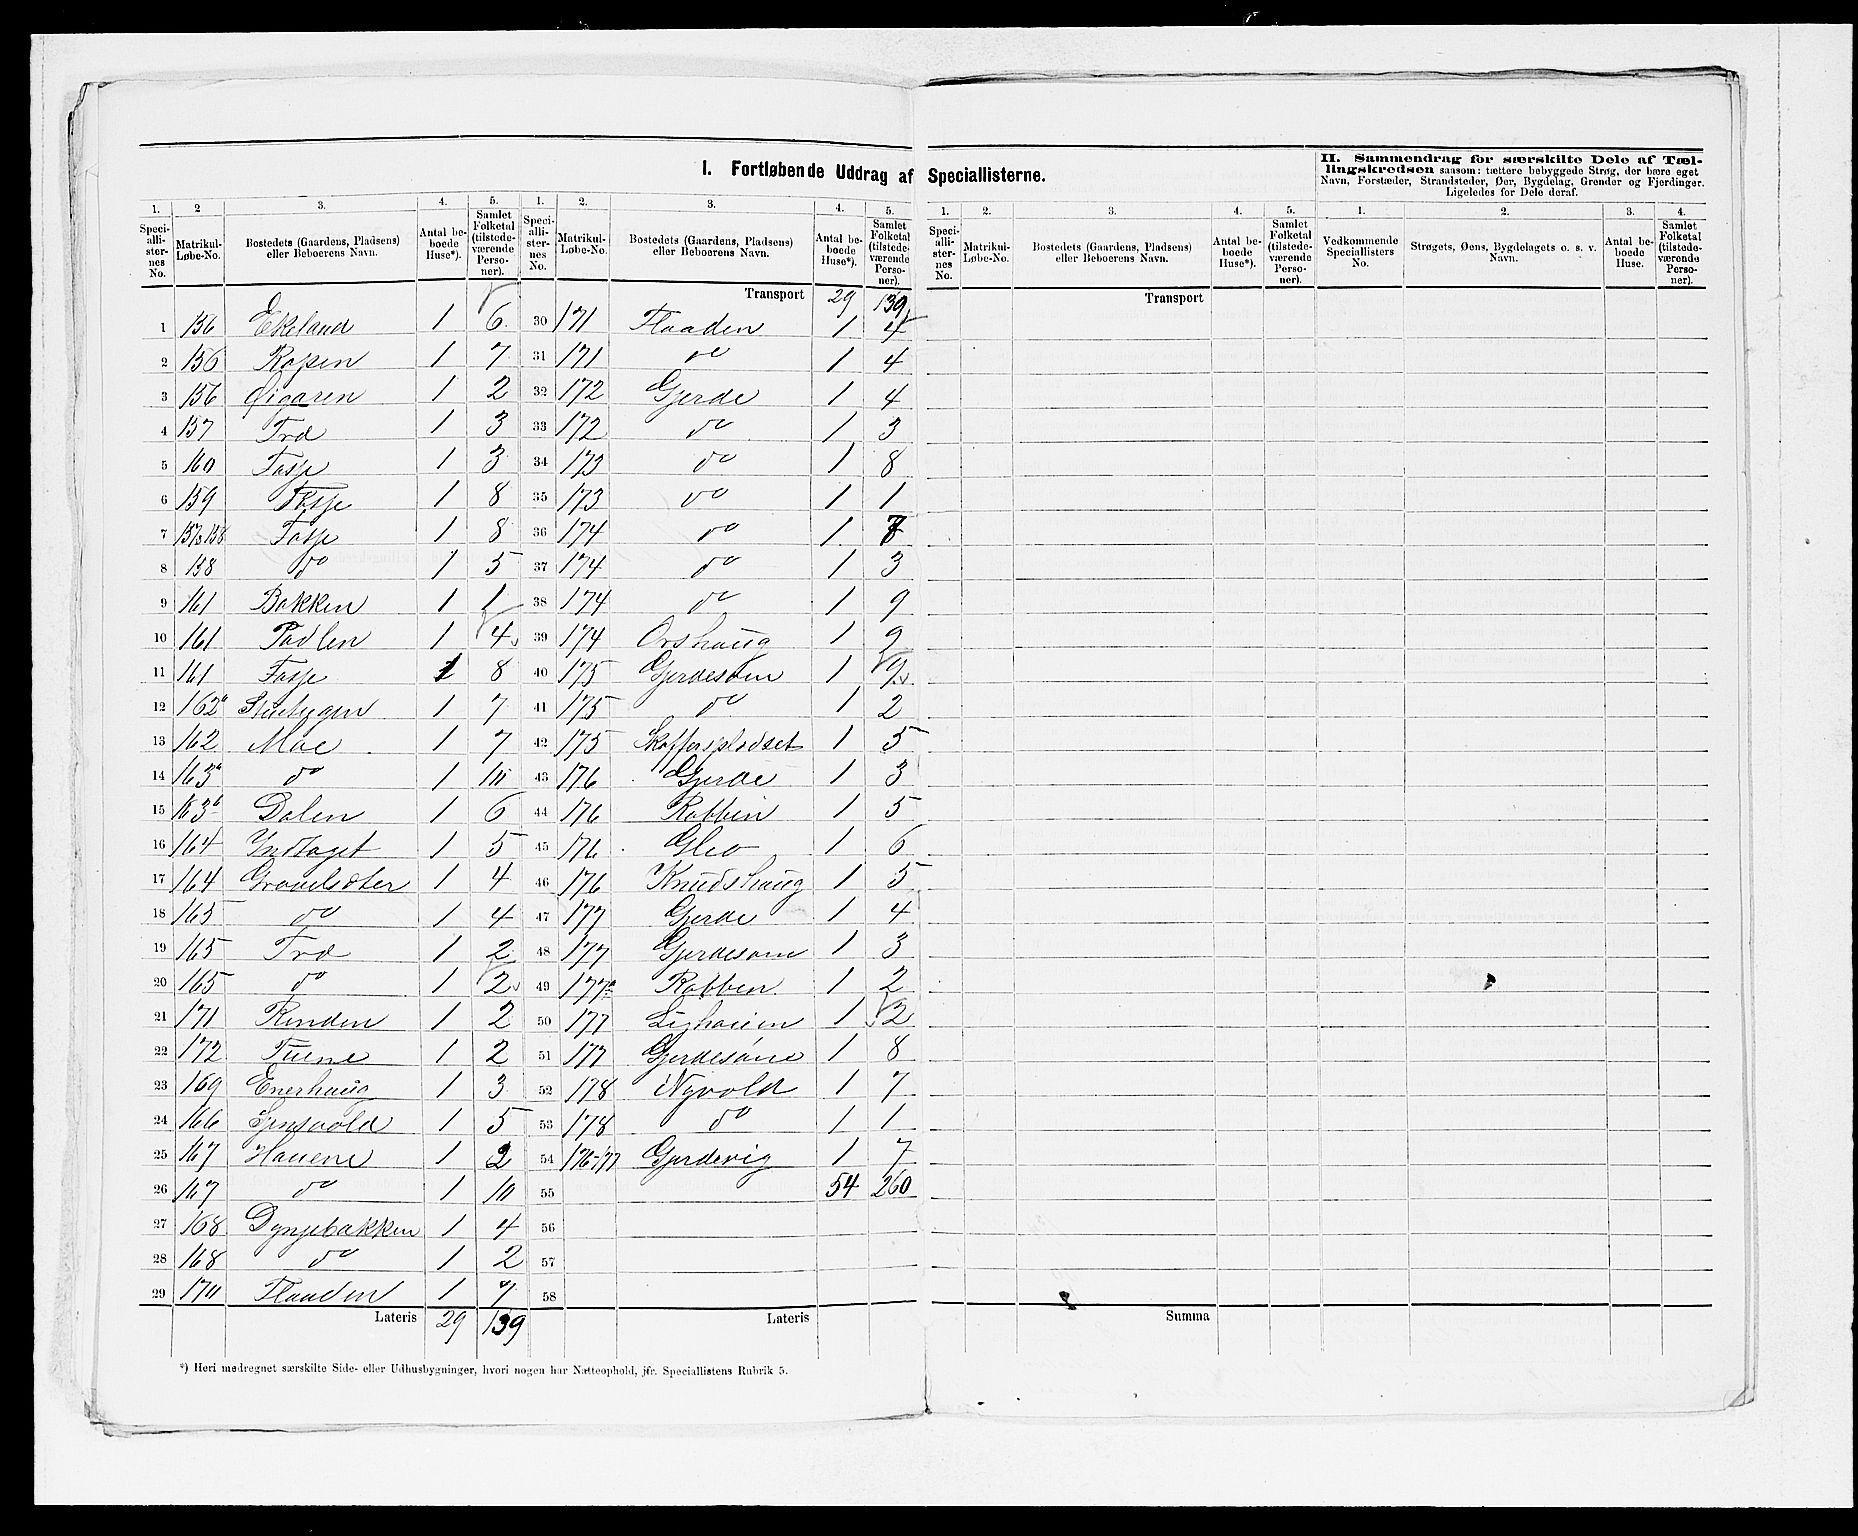 I. Fortløbende Uddrag af Speciallisterne.
II. Sammendrag for særskilte Dele af Tæl-
lingskredsen saasom: tættere bebyggede Strøg, der bære eget
Navn, Forstæder, Strandsteder, Øer, Bygdelag, Grender og Fjerdinger.
Ligeledes for Dele deraf.
1. 2 3. 4. 5. 1. 2. 3. 4. 5. 1. 2. 3. 4. 5. 1. 2. 3. 4.
Speciallisternes No. Matrikul-Løbe-No. Bostedets (Gaardens, Pladsens) eller Beboerens Navn. Antal beboede Huse*). Samlet Folketal (tilstedeværende Personer).
Speciallisternes No. Matrikul-Løbe-No. Bostedets (Gaardens, Pladsens) eller Beboerens Navn. Antal beboede Huse*). Samlet Folketal (tilstedeværende Personer).
Speciallisternes No. Matrikul-Løbe-No. Bostedets (Gaardens, Pladsens) eller Beboerens Navn. Antal beboede Huse*). Samlet Folketal (tilstedeværende Personer).
Vedkommende Speciallisters No. Strøgets, Øens, Bygdelagets o. s. v. Navn. Antal beboede Huse. Samlet Folketal (tilstedeværende Personer).
1 156 Ekeland 1 6
2 156 Ropen 1 7
3 156 Øigaren 1 2
4 157 Trd 1 3
5 160 Fosse 1 3
6 159 Fosse 1 8
7 157,158 Fosse 1 8
8 158 do 1 5
9 161 Bakken 1 1
10 161 Podlen 1 4
11 161 Fosse 1 8
12 162a 1 7
13 162 Moe 1 7
14 163a do 1 10
15 163b Dalen 1 6
16 164 Indtaget 1 5
17 164 Gravelsæter 1 4
18 165 do 1 4
19 165 Trd 1 2
20 165 do 1 2
21 171 Rinden 1 2
22 172 Tuene 1 2
23 169 Enerhaug 1 3
24 166 1 5
25 167 Hauene 1 2
26 167 do 1 10
27 168 Dyngebakken 1 4
28 168 do 1 2
29 170 Flaaden 1 7
Lateris 29 139
Transport 29 139
30 171 Flaaden 1 4
31 171 do 1 4
32 172 Gjerde 1 4
33 172 do 1 3
34 173 do 1 8
35 173 do 1 1
36 174 do 1 7
37 174 do 1 3
38 174 do 1 9
39 174 Orshaug 1 2
40 175 Gjerdesøen 1 9
41 175 do 1 2
42 175 Skoffersplodset 1 5
43 176 Gjerde 1 3
44 176 Robbin 1 5
45 176 Gleo 1 6
46 176 Knudshaug 1 5
47 177 Gjerde 1 4
48 177 Gjerdesøen 1 3
49 177a Robben 1 2
50 177 Lighauen 1 2
51 177 Gjerdesøne 1 8
52 178 Nyvold 1 7
53 178 do 1 1
54 176-177 Gjerdevig 1 7
55 54 260
56
57
58
Lateris
Transport
Summa
*) Heri medregnet særskilte Side- eller Udhusbygninger, hvori nogen har Natteophold, jfr. Speciallistens Rubrik 5.